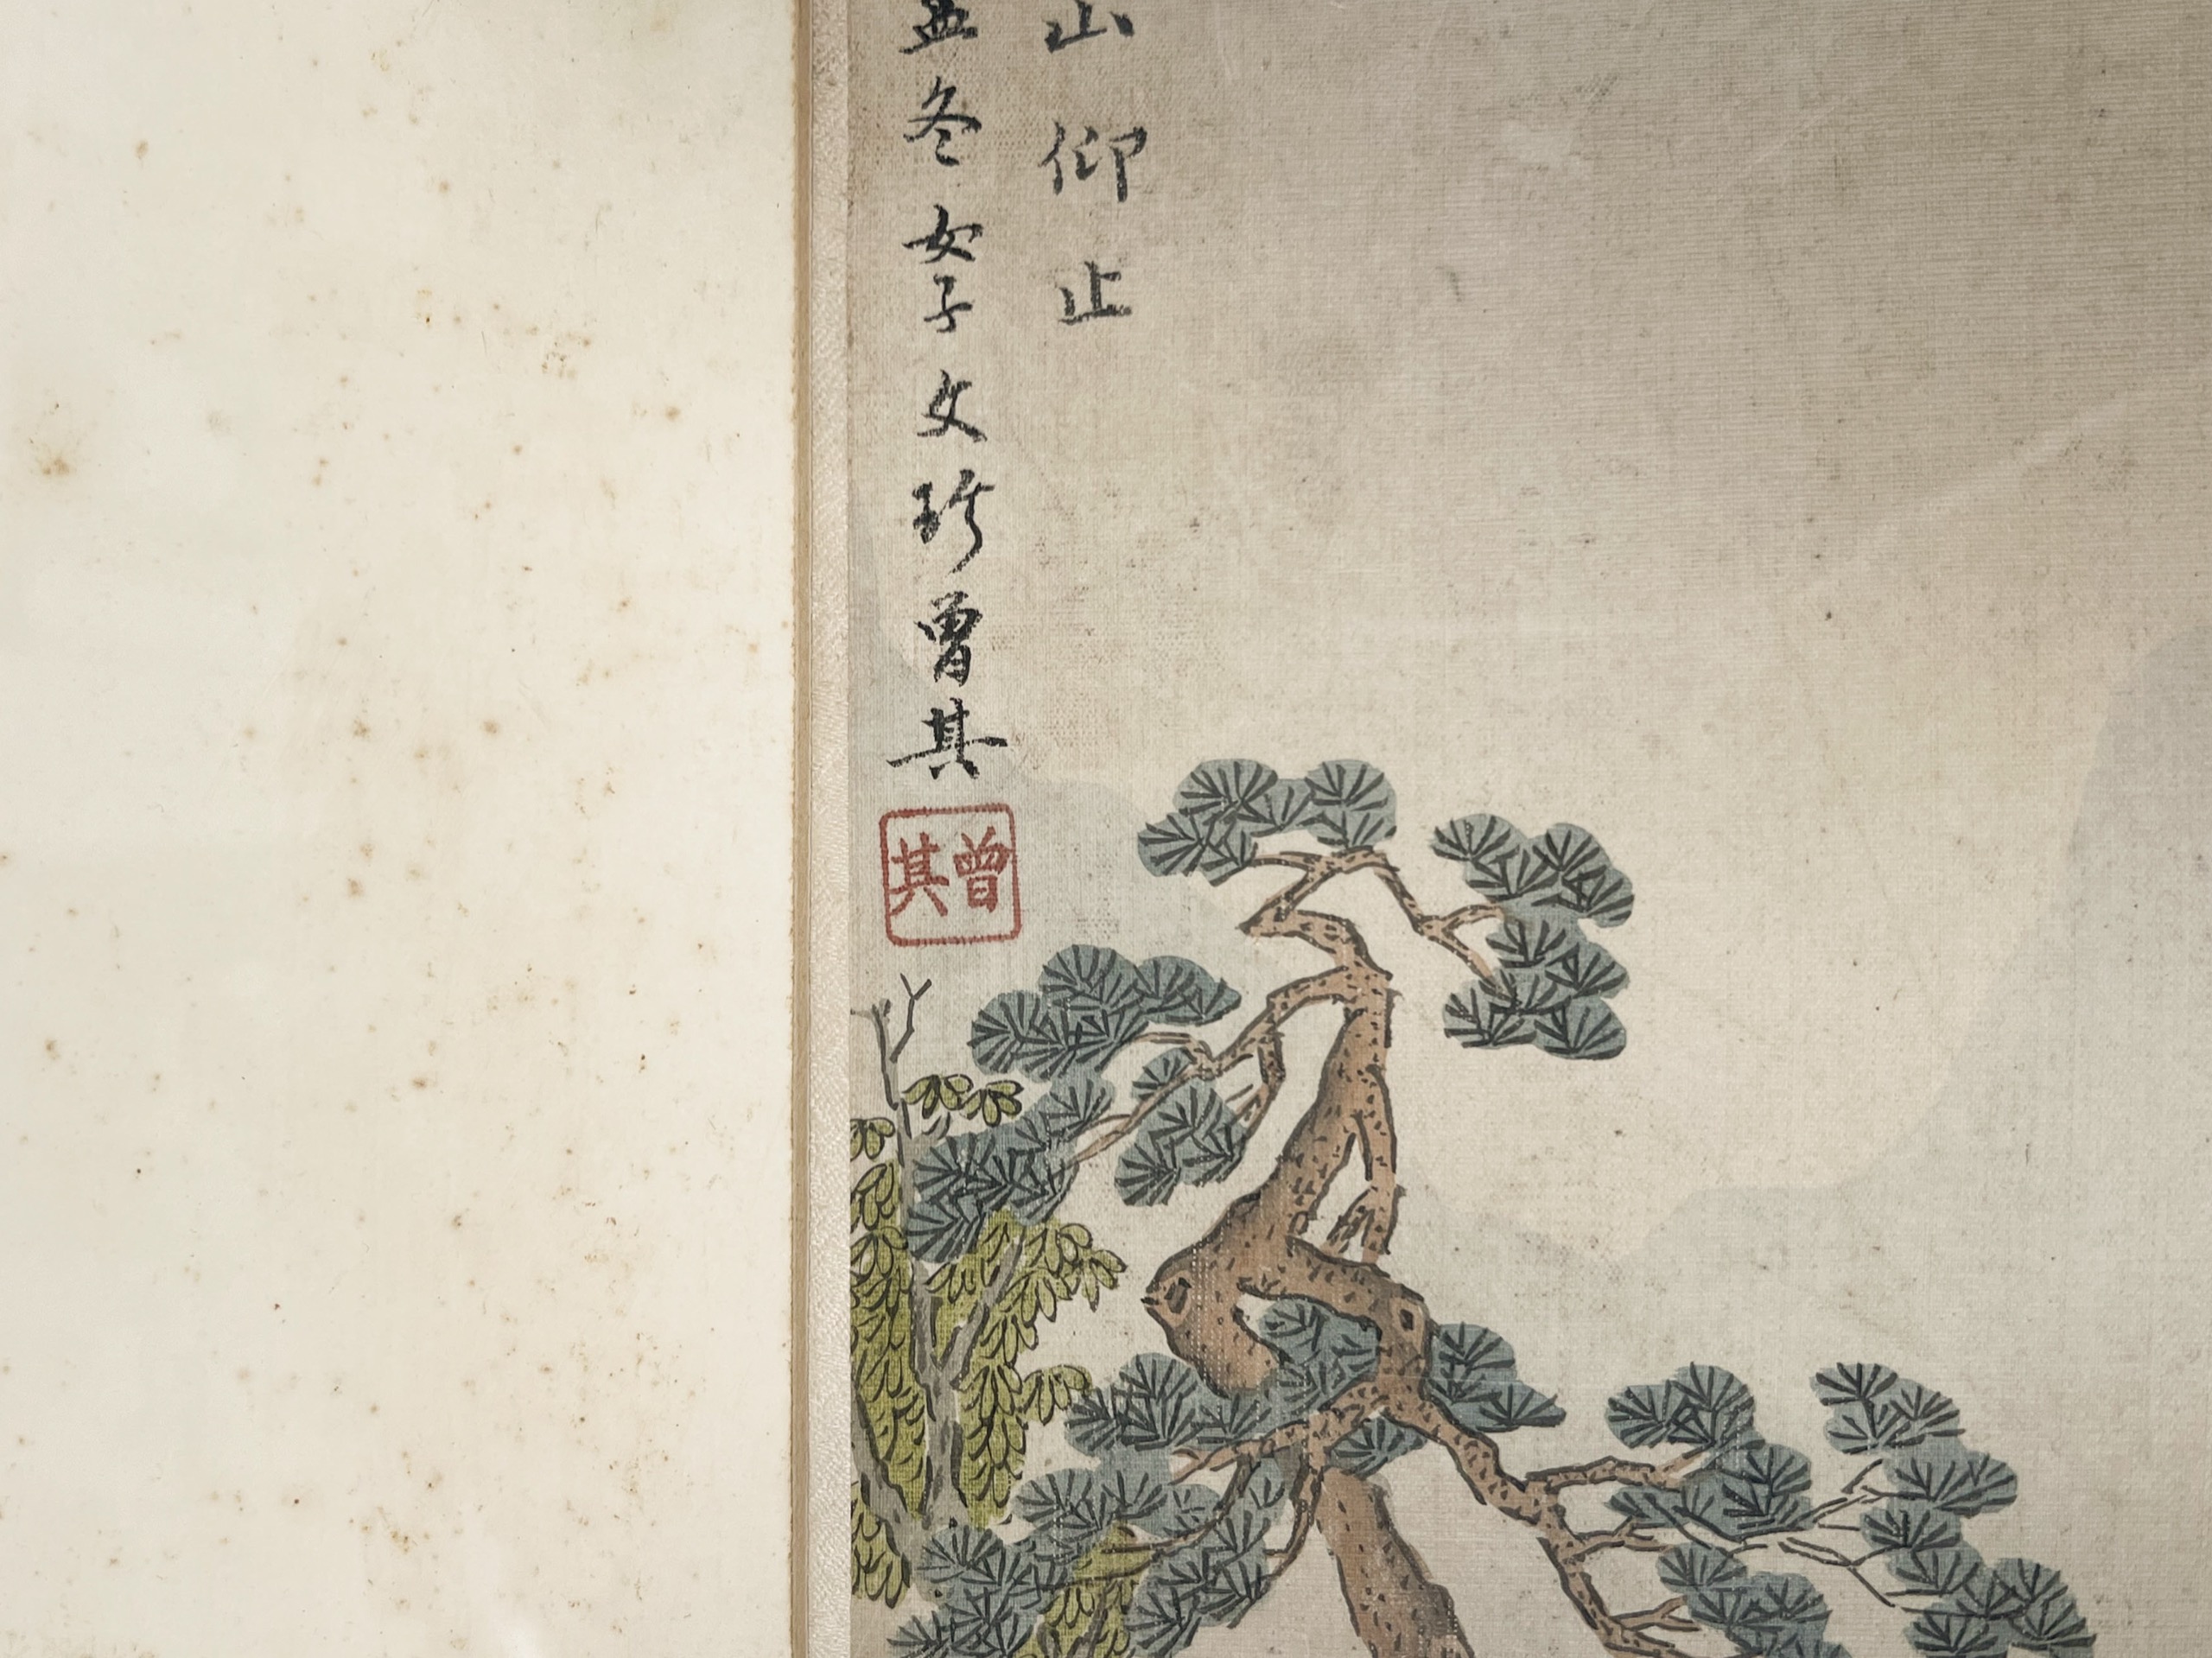 山仰止
孟冬女子文珍曾其
曾其